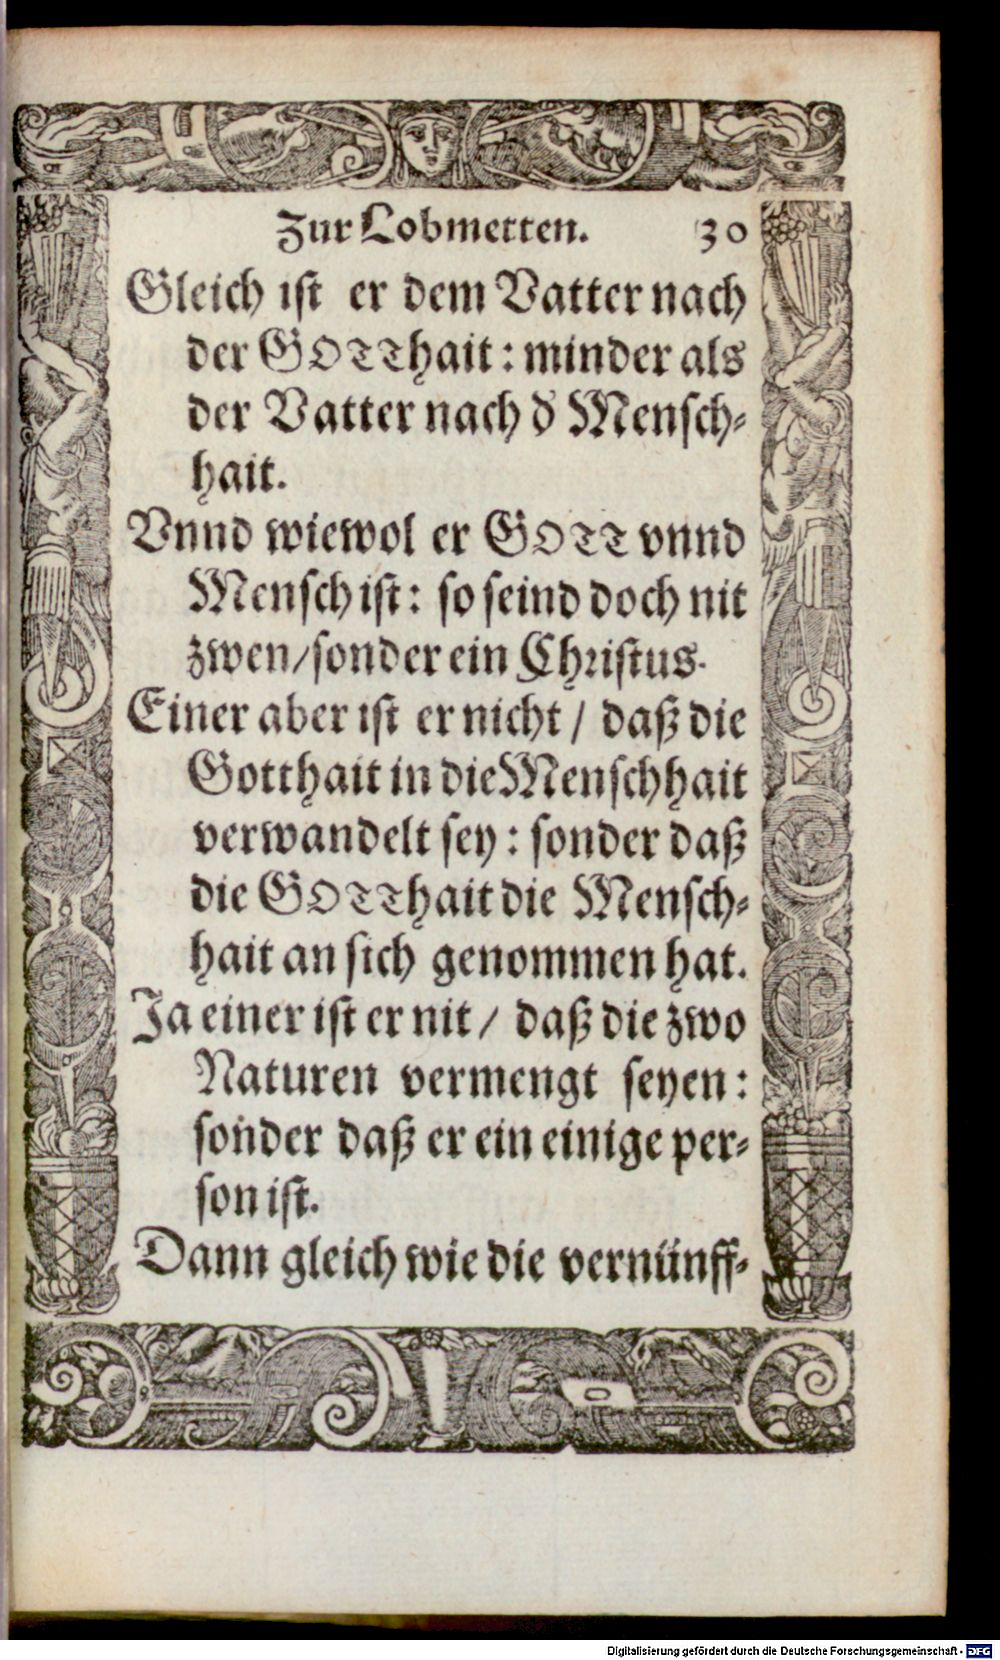 Zur Lobmetten. 30
Gleich ist er dem Vatter nach
der GOTThait: minder als
der Vatter nach d̕ Mensch-
hait.
Vnnd wiewol er GOTT vnnd
Mensch ist: so seind doch nit
zwen/ sonder ein Christus.
Einer aber ist er nicht / daß die
Gotthait in die Menschhait
verwandelt sey: sonder daß
die GOTThait die Mensch-
hait an sich genommen hat.
Ja einer ist er nit / daß die zwo
Naturen vermengt seyen:
sonder daß er ein einige per-
son ist.
Dann gleich wie die vernünff-
Digitalisierung gefördert durch die Deutsche Forschungsgemeinschaft - DFG